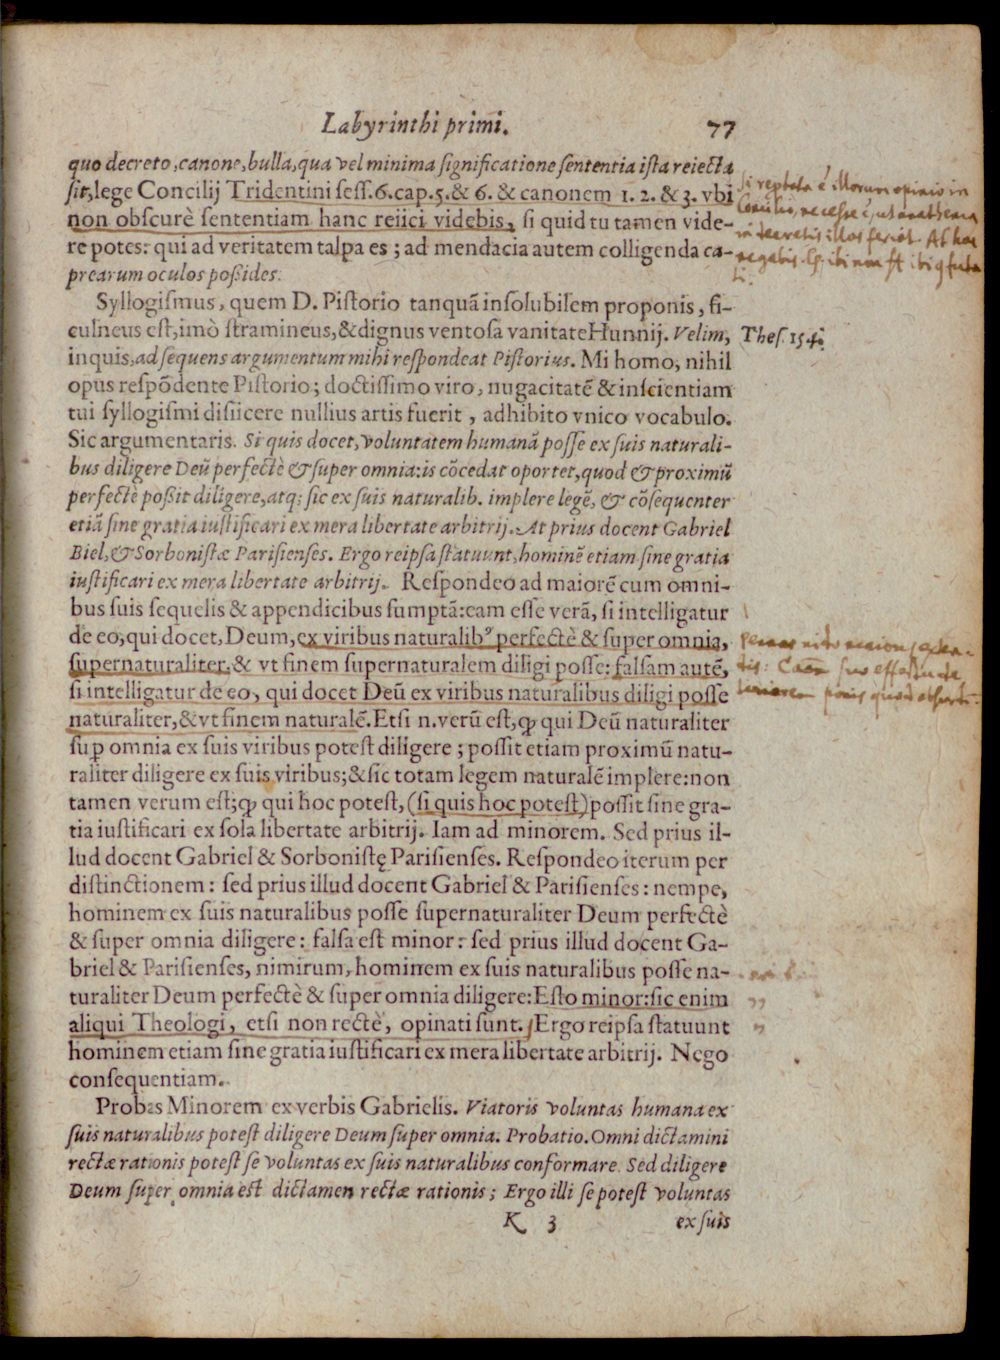 Labyrinthi primi. 77
quo decreto, canone, bulla, qua vel minima significatione sententia ista reiecta
sit, lege Concilij Tridentini sess. 6. cap. 5. & 6. & canonem 1. 2. & 3. vbi
non obscurè sententiam hanc reiici videbis, si quid tu tamen vide-
re potes: qui ad veritatem talpa es; ad mendacia autem colligenda ca-
prearum oculos possides.
si reptata ē illorum opinio in
Concilio, necesse ē, ut anathema
in decretis illos feriat. At hoc
Syllogismus, quem D. Pistorio tanquā insolubilem proponis, fi-
culneus est, imò stramineus, & dignus ventosa vanitate Hunnij. Velim,
Thes. 154.
inquis, ad sequens argumentum mihi respondeat Pistorius. Mi homo, nihil
opus respōdente Pistorio; doctissimo viro, nugacitatē & inscientiam
tui syllogismi disiicere nullius artis fuerit, adhibito vnico vocabulo.
Sic argumentaris. Si quis docet, voluntatem humanā posse ex suis naturali-
bus diligere Deū perfectè & super omnia: is cōcedat oportet, quod & proximū
perfectè possit diligere, atq; sic ex suis naturalib. implere legē, & cōsequenter
etiā sine gratia iustificari ex mera libertate arbitrij. At prius docent Gabriel
Biel, & Sorbonistæ Parisienses. Ergo reipsa statuunt, hominē etiam sine gratia
iustificari ex mera libertate arbitrij. Respondeo ad maiorē cum omni-
bus suis sequelis & appendicibus sumptā: eam esse verā, si intelligatur
de eo, qui docet, Deum, ex viribus naturalibꝰ perfectè & super omnia,
supernaturaliter, & vt finem supernaturalem diligi posse: falsam autē,
si intelligatur de eo, qui docet Deū ex viribus naturalibus diligi posse
naturaliter, & vt finem naturalē. Etsi n. verū est, ꝙ qui Deū naturaliter
suꝑ omnia ex suis viribus potest diligere; possit etiam proximū natu-
raliter diligere ex suis viribus; & sic totam legem naturalē implere: non
tamen verum est; ꝙ qui hoc potest, (si quis hoc potest) possit sine gra-
tia iustificari ex sola libertate arbitrij. Iam ad minorem. Sed prius il-
lud docent Gabriel & Sorbonistę Parisienses. Respondeo iterum per
distinctionem: sed prius illud docent Gabriel & Parisienses: nempe,
hominem ex suis naturalibus posse supernaturaliter Deum perfectè
& super omnia diligere: falsa est minor: sed prius illud docent Ga-
briel & Parisienses, nimirum, hominem ex suis naturalibus posse na-
turaliter Deum perfectè & super omnia diligere: Esto minor: sic enim
aliqui Theologi, etsi non rectè, opinati sunt. Ergo reipsa statuunt
hominem etiam sine gratia iustificari ex mera libertate arbitrij. Nego
consequentiam.
Probas Minorem ex verbis Gabrielis. Viatoris voluntas humana ex
suis naturalibus potest diligere Deum super omnia. Probatio. Omni dictamini
rectæ rationis potest se voluntas ex suis naturalibus conformare. Sed diligere
Deum super omnia est dictamen rectæ rationis; Ergo illi se potest voluntas
K 3 ex suis